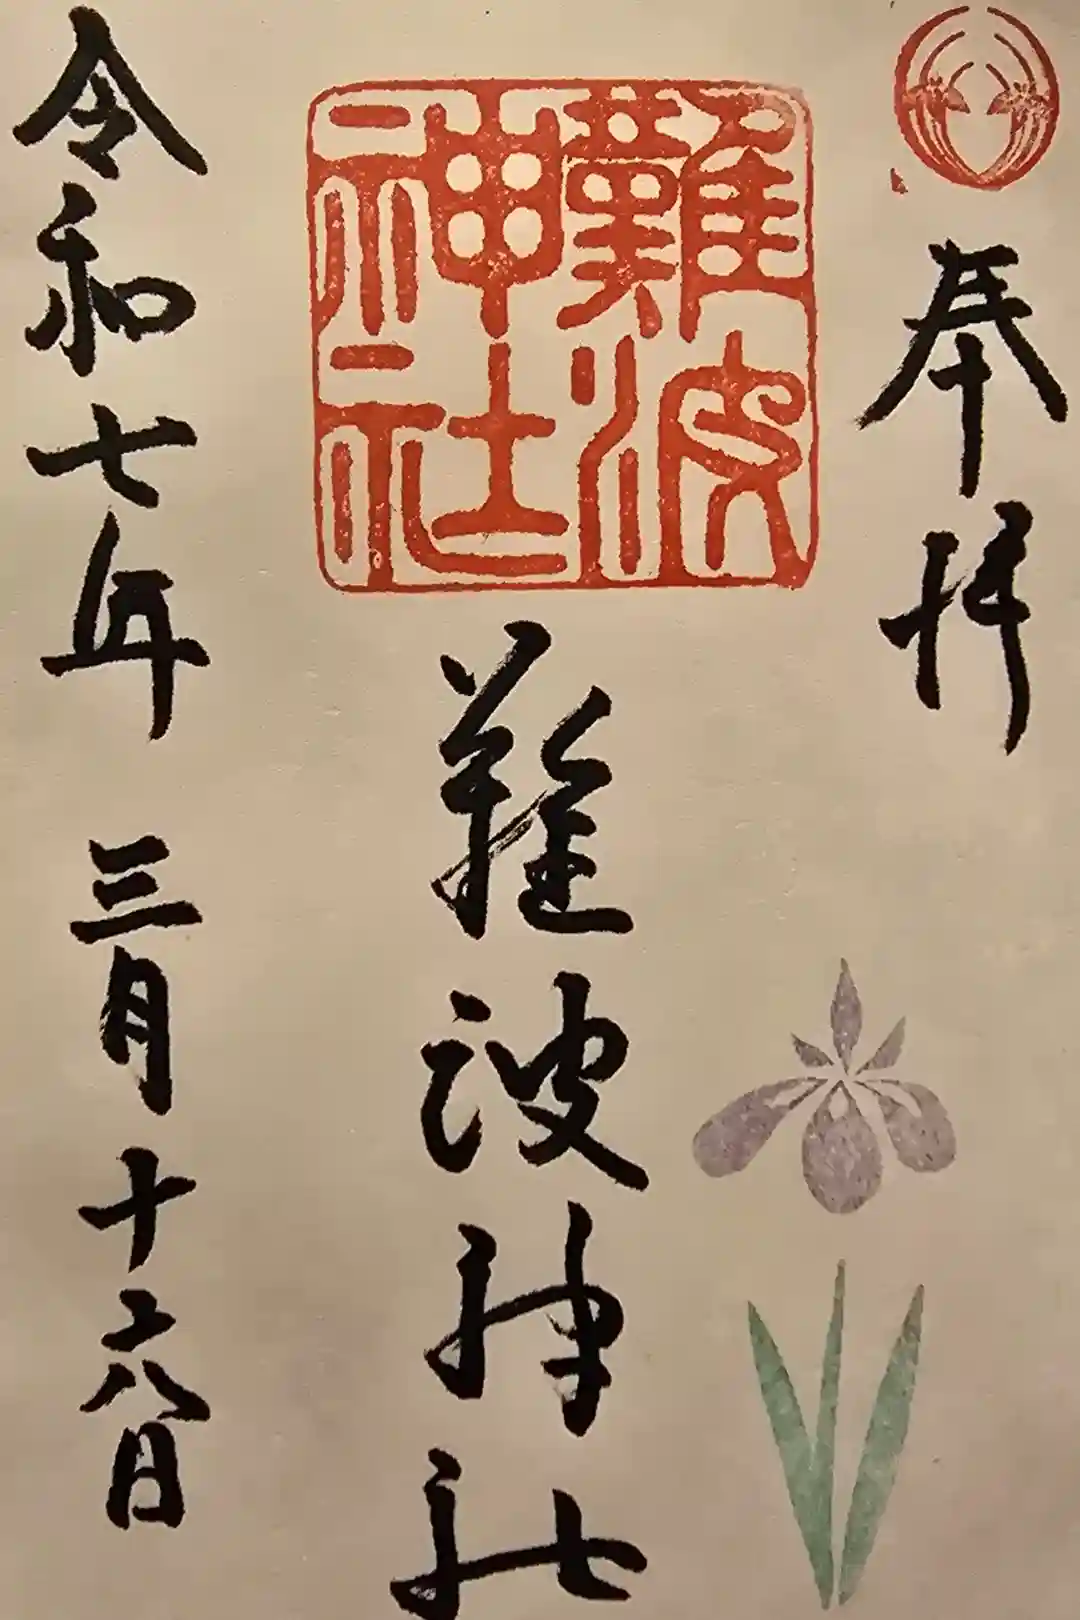 奉拝
難波神社
難波神社
令和七年 三月十六日